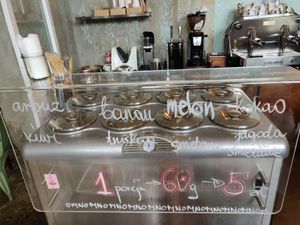 arbuz banan melon kakao
kiwi truskawka śmietana jagoda
śmietanie
1 porcja → 60g → 5 zł
OMNOMNOMNOMNOMNOMNOMNOM